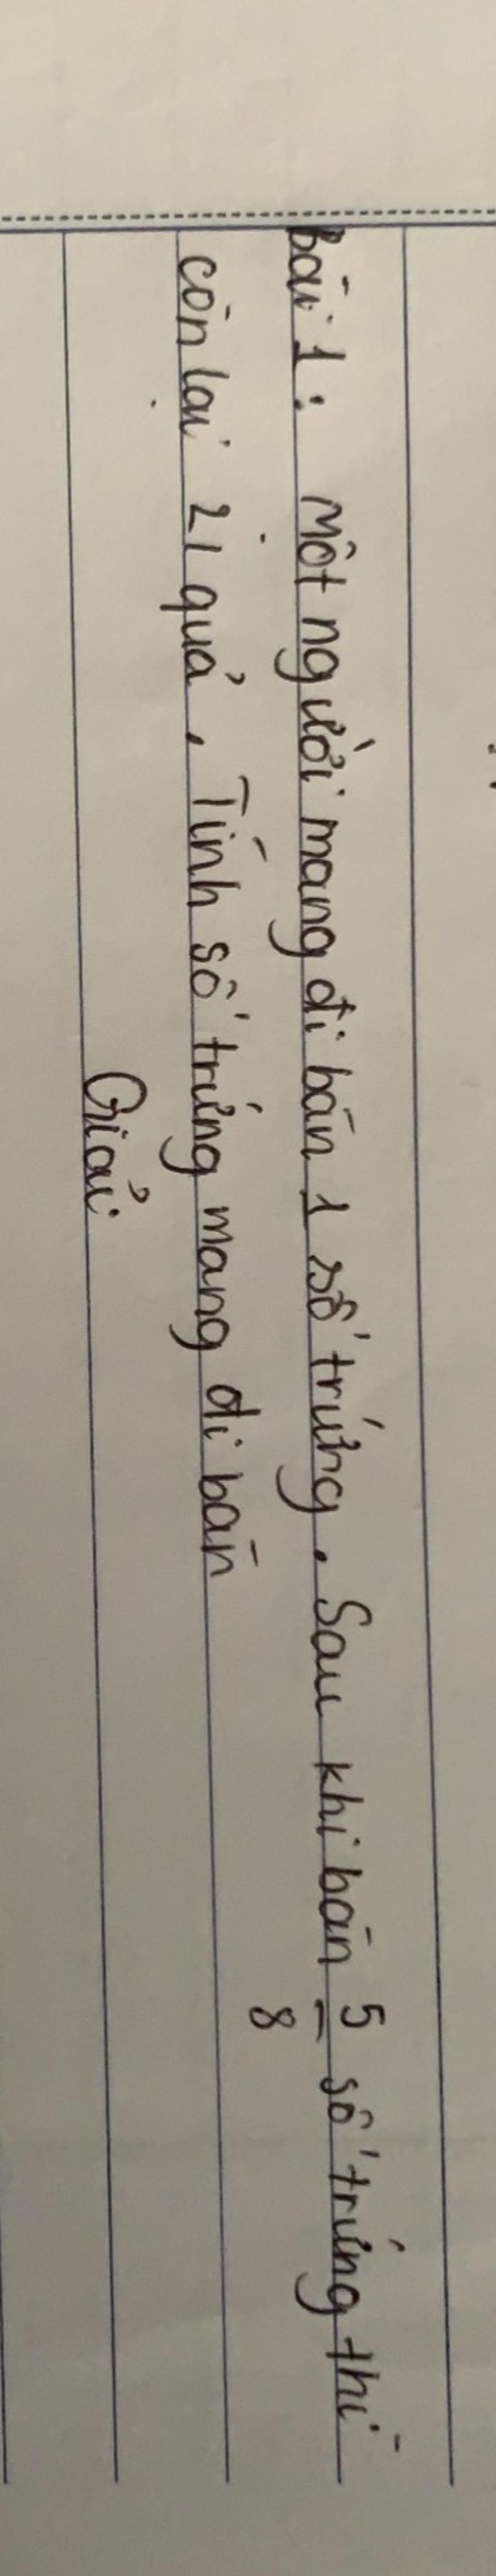 bài 1: Một người mang đi bán 1 số trứng. Sau khi bán 5/8 số trứng thì
còn lại 21 quả. Tính số trứng mang đi bán
Giải